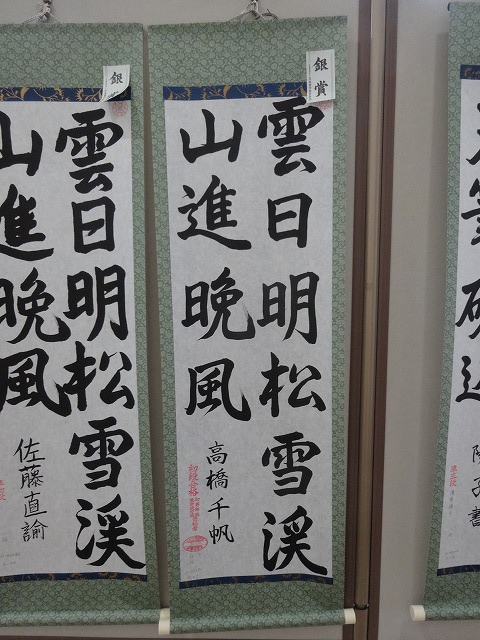 銀賞
雲日明松雪渓
山進晩風
高橋千帆
初段合格
銀
雲日明松雪渓
山進晩風
佐藤直諭